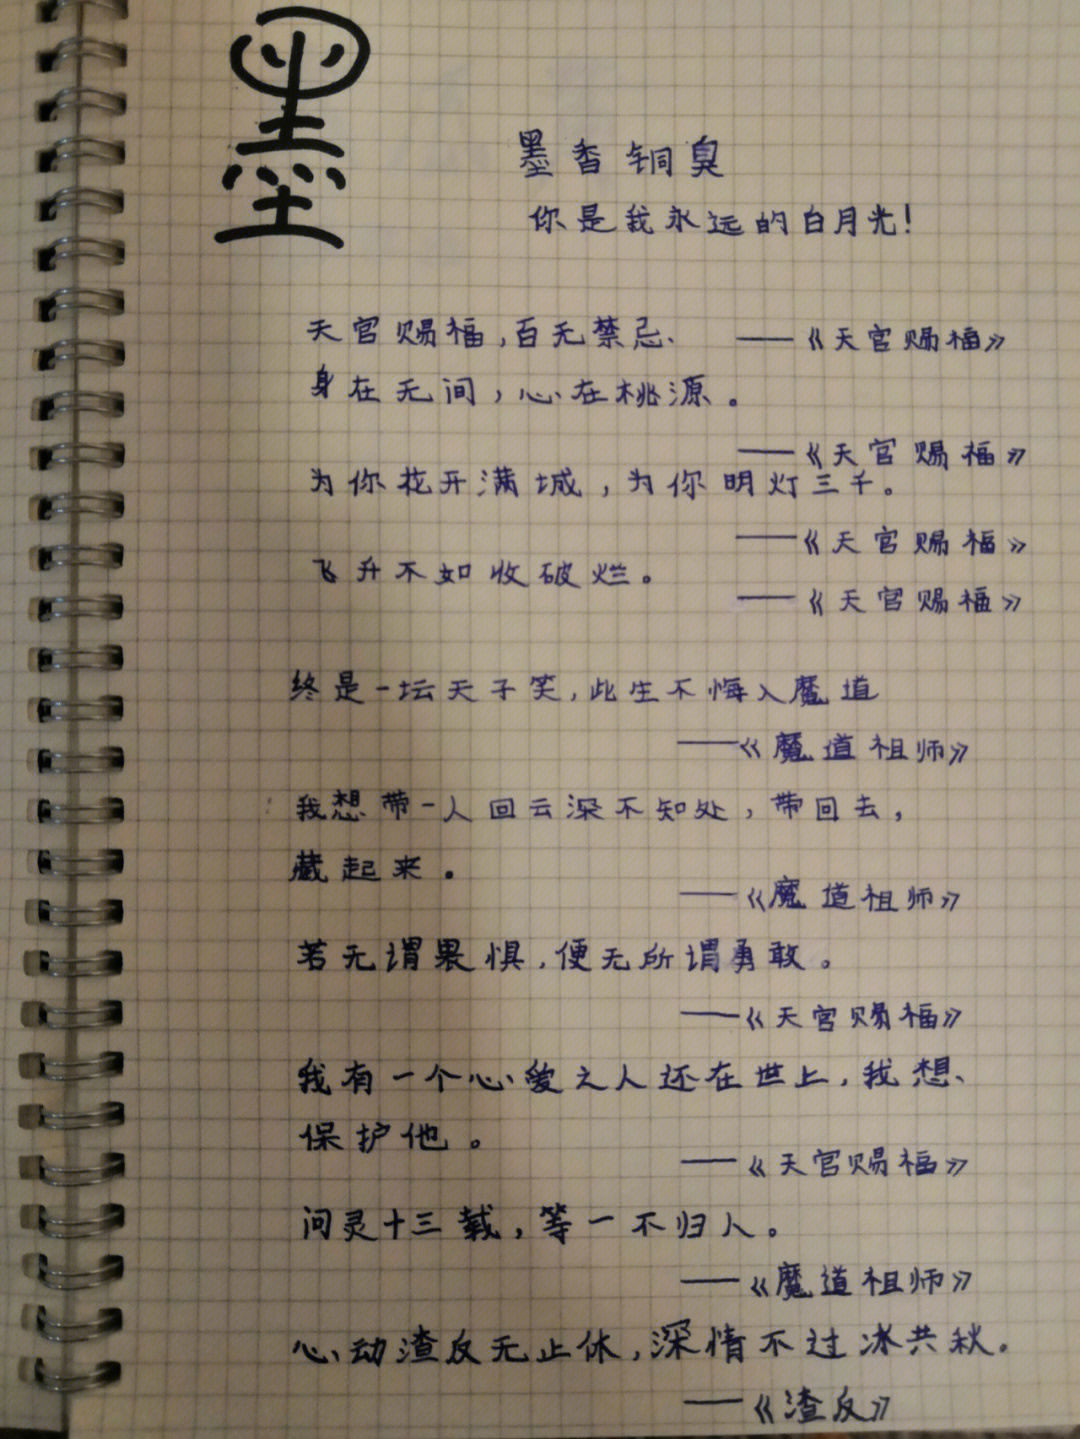 墨
墨香铜臭
你是我永远的白月光！
天官赐福，百无禁忌、
——《天官赐福》
身在无间，心在桃源。
——《天官赐福》
为你花开满城，为你明灯三千。
——《天官赐福》
飞升不如收破烂。
——《天官赐福》
终是一坛天子笑，此生不悔入魔道
——《魔道祖师》
我想带一人回云深不知处，带回去，
藏起来。
——《魔道祖师》
若无谓畏惧，便无所谓勇敢。
——《天官赐福》
我有一个心爱之人还在世上，我想、
保护他。
——《天官赐福》
问灵十三载，等一不归人。
——《魔道祖师》
心动渣反无止休，深情不过冰共秋。
——《渣反》